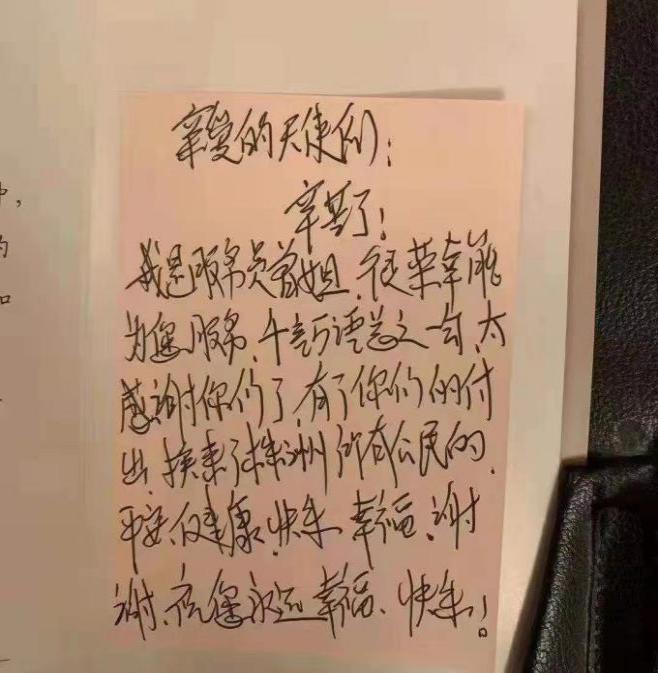 亲爱的天使们:
辛苦了!
我是服务员曾姐,很荣幸能
为您服务,
感谢你们了,有了你们的付
出,换来了株洲所有公民的,
平安、健康,快乐 幸福,谢
谢,祝您永远幸福、快乐!
中,
的
和